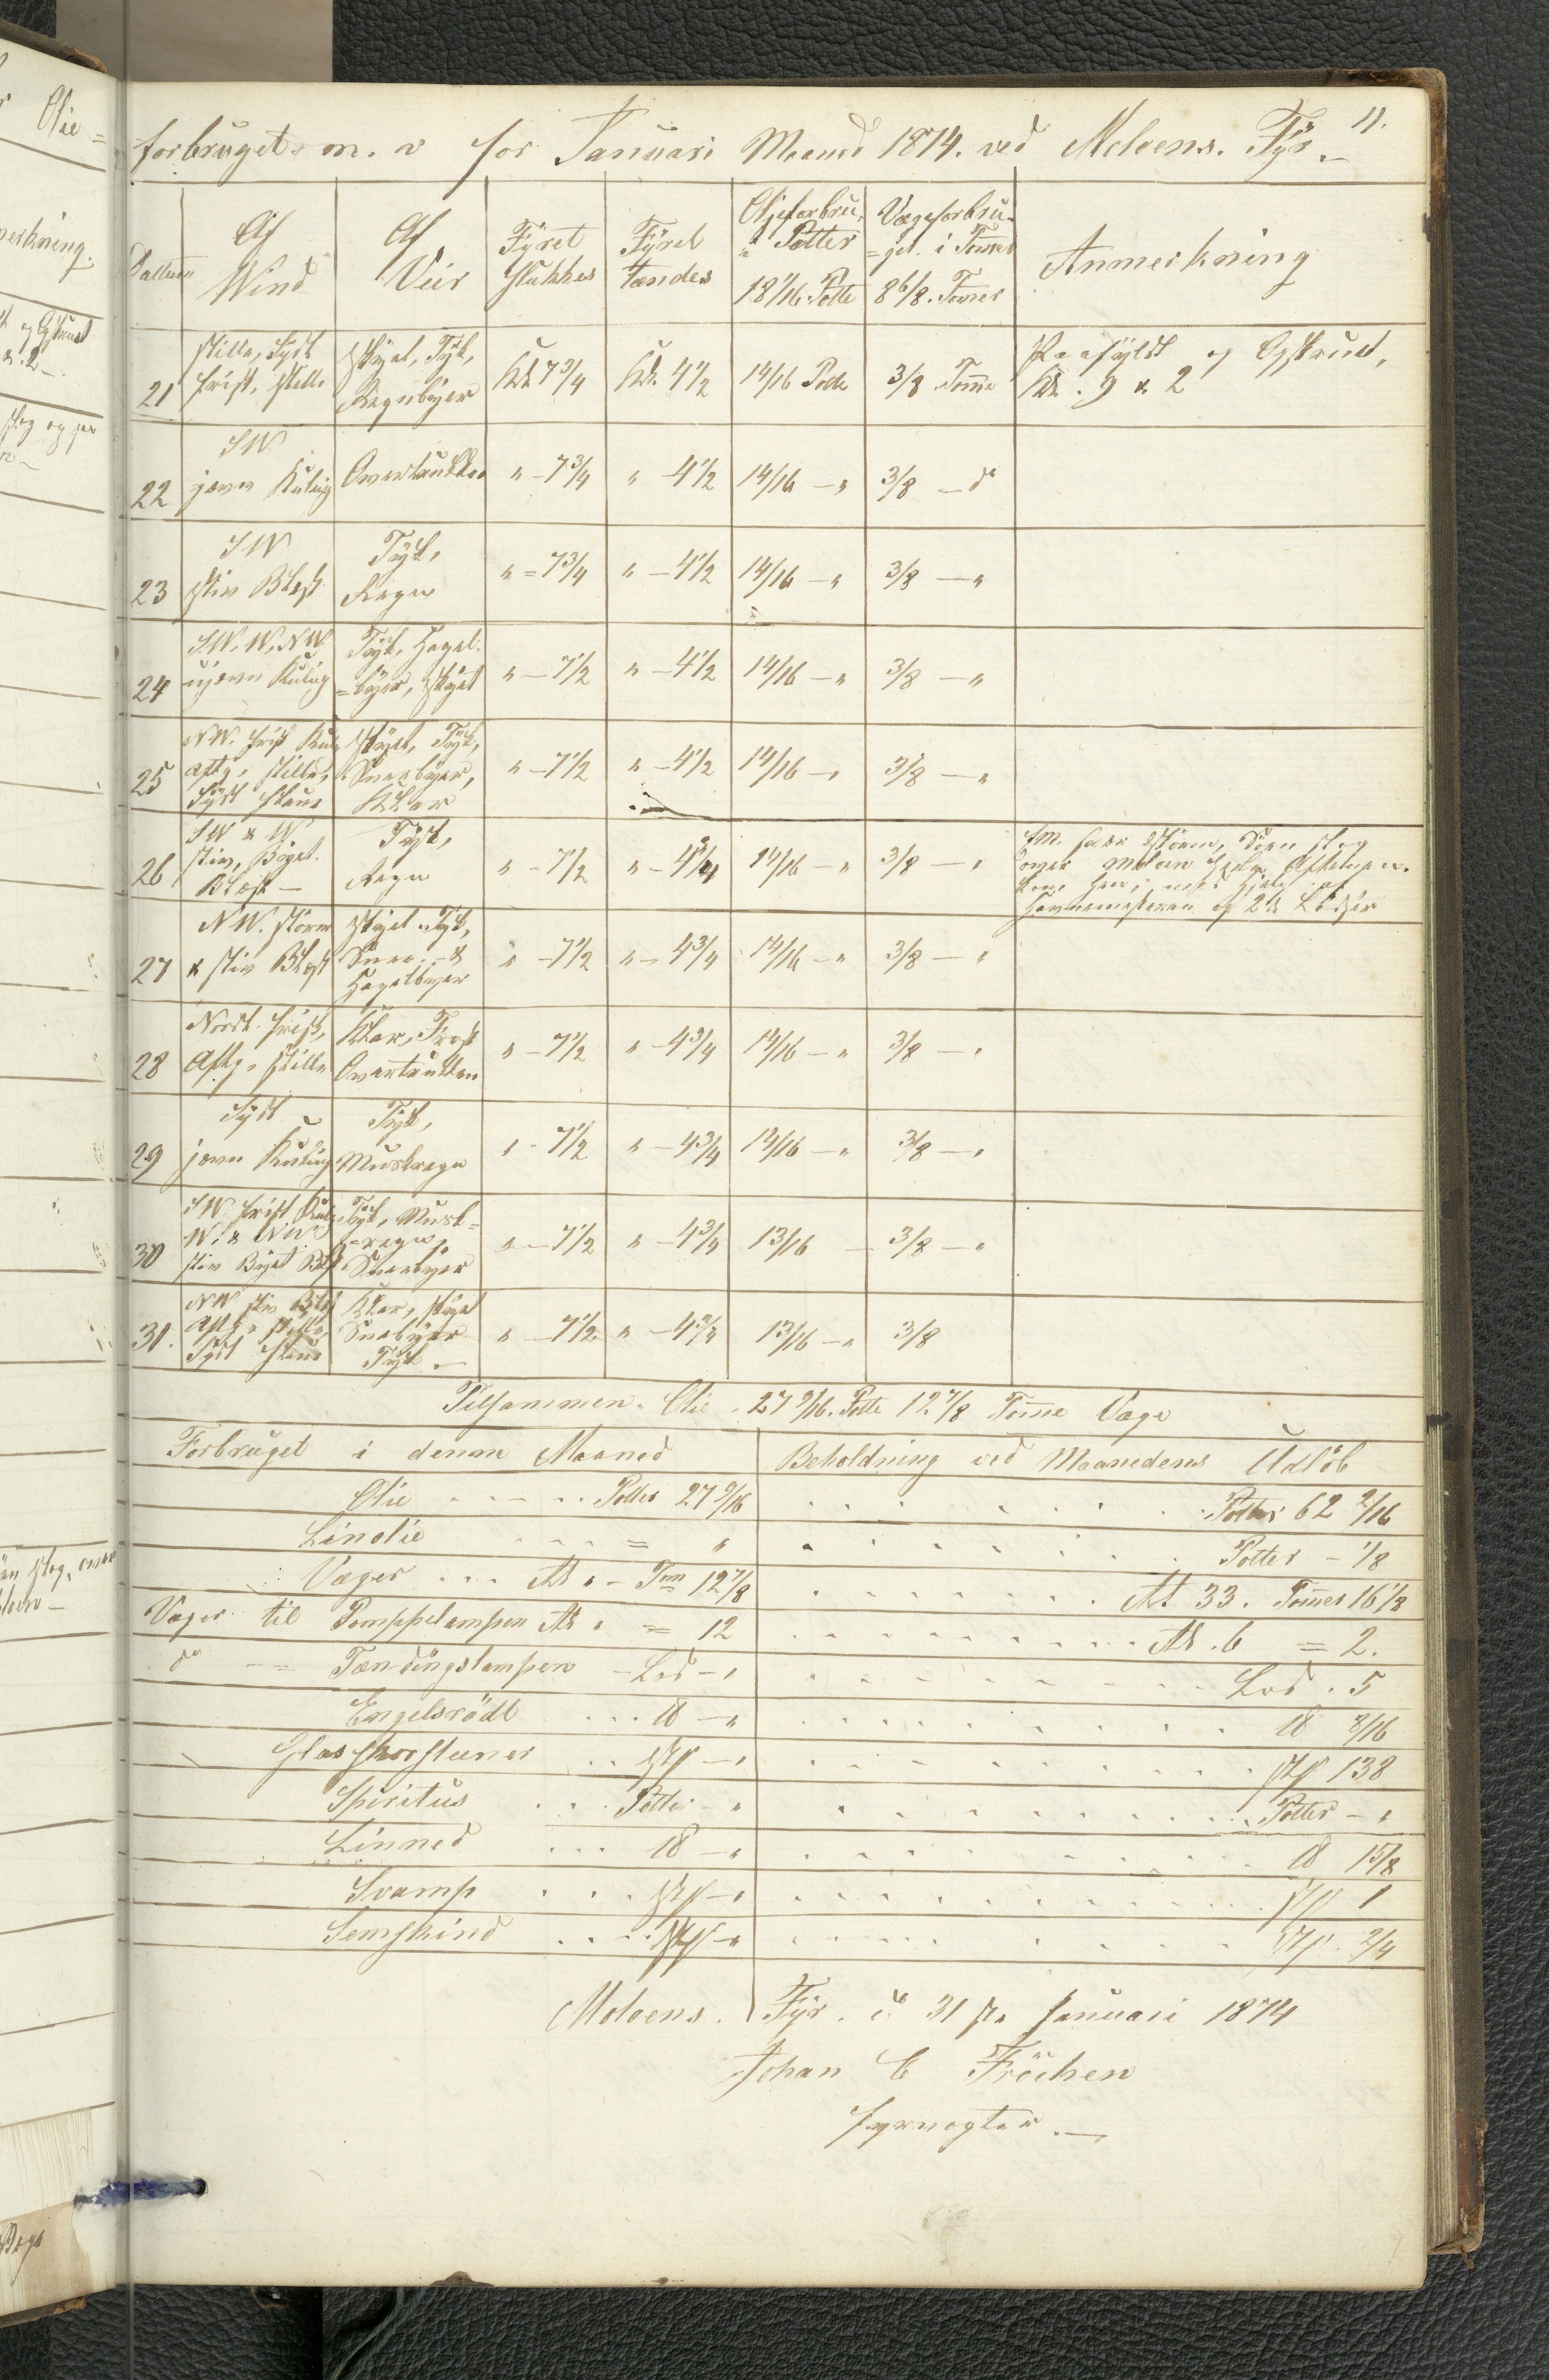 11.
forbruget m. v for Januari Maaned 1874. ved Molvens. Fyr.
Dattum
Af Wind
Af Veir
Fyret slukkes
Fyret tændes
Oljeforbru. i Potter 18 1/16. Potte
Vægeforbru- =get. i Tommer 8 6/8. Tommer
Anmerkning
21 stille, Syd frisk, stille | Skyet, Tyk, Regnbyer | Kl. 7 3/4 | Kl. 4 1/2 | 14/16 Potte | 3/8 Tomme | Paafyldt og Opskruet, Kl. 9 & 2
22 SW jevn Kuling | Overtrukken | " - 7 3/4 | " 4 1/2 | 14/16 - " | 3/8 - do
23 SW stiv Blæst | Tyk, Regn | " = 7 3/4 | " - 4 1/2 | 14/16 - " | 3/8 - "
24 SW. W. NW ujevn Kuling | Tyk, Hagel- =byer, Skyet | " - 7 1/2 | " - 4 1/2 | 14/16 - " | 3/8 - "
25 NW. frisk Kulg Aftg, stille, Syd flau | Skyet, Tyk, Sneebyer, Klar | " - 7 1/2 | " - 4 1/2 | 14/16 - " | 3/8 - "
26 SW & W stiv, Byget. Blæst - | Tyk, Regn | " - 7 1/2 | " - 4 3/4 | 14/16 - " | 3/8 - "
over Moloen
Havnemesteren og 2de Lodser
27 NW. storm & stiv Blæst | Skyet Tyk, Snee- & Hagelbyer | " - 7 1/2 | " - 4 3/4 | 14/16 - " | 3/8 - "
28 Nord. frisk, Aftg. stille | Klar, Frost Overtrukken | " - 7 1/2 | " - 4 3/4 | 14/16 - " | 3/8 - "
29 Syd jevn Kuling | Tyk, Muskregn | " - 7 1/2 | " - 4 3/4 | 14/16 - " | 3/8 - "
30 SW frisk Kulg W. & NW stiv Byet Blst | Tyk, Musk- =regn, Sneebyer | " - 7 1/2 | " - 4 3/4 | 13/16 - | 3/8 - "
31. NW stiv Blst Aftg. stille, Syd flau | Klar, Skyet Snebyer Tyk. - | " - 7 1/2 | " - 4 3/4 | 13/16 - " | 3/8
Tilsammen. Olie. 27 9/16. Potte 12 7/8 Tomme Væge
Forbruget i denne Maaned | Beholdning ved Maanedens Udløb
Olie Potter 27 9/16 | Potter 62 2/16
Linolie = " | Potter - 1/8
Væger At " - Tm 12 7/8 | At 33. Tommer 16 1/8
Væger til Pomppelampen At " = 12 | At. 6 = 2.
do -= Tændingslampen - Lod - " | Lod. 5
Engelsrödt ℔ - " | ℔ 8/16
Glasskorstener stk - " | stk 138
Spiritus Potter - " | Potter - "
Linned ℔ - " | ℔ 15/8
Svamp stk - " | stk 1
Semskind stk - " | stk. 2/4
Molvens. Fyr. d. 31 ste Januari 1874
Johan C Fröchen
fyrvogter. -